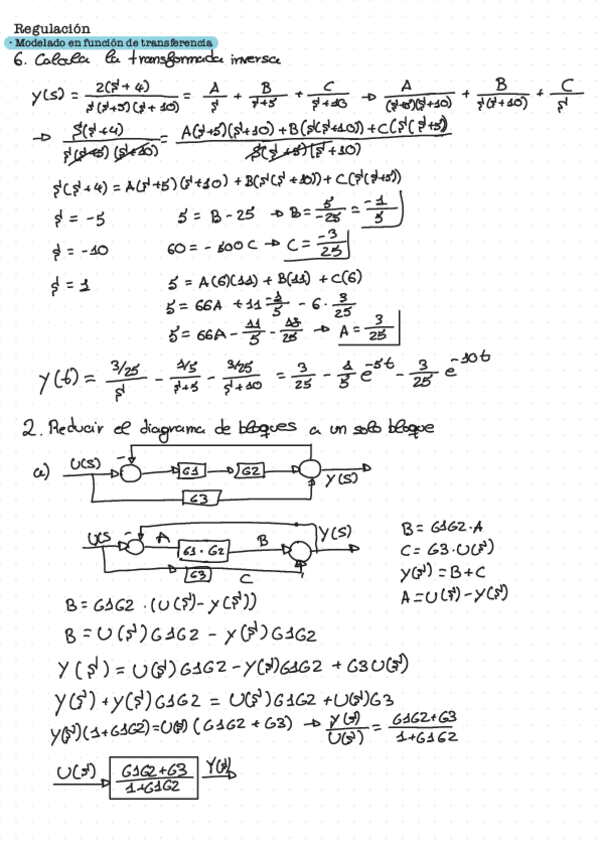 Regulación
· Modelado en función de transferencia
6. Calcula la transformada inversa
Y(s) = 2(s+4) / s(s+5)(s+10) = A/s + B/s+5 + C/s+10 → A/(s+5)(s+10) + B/s(s+10) + C/s
→ 5(s+4) / s(s+5)(s+10) = A(s+5)(s+10) + B(s(s+10)) + C(s(s+5)) / s(s+5)(s+10)
s(s+4) = A(s+5)(s+10) + B(s(s+10)) + C(s(s+5))
s = -5 5 = B-25 → B = 5/-25 = -1/5
s = -10 60 = -500C → C = -3/25
s = 1 5 = A(6)(11) + B(11) + C(6)
5 = 66A + 11 -1/5 - 6·3/25
5 = 66A - 11/5 - 18/25 → A = 3/25
Y(t) = 3/25/s - 1/5/s+5 - 3/25/s+10 = 3/25 - 1/5 e^-5t - 3/25 e^-10t
2. Reducir el diagrama de bloques a un solo bloque
a) U(s) - G1 G2 Y(s)
G3
U(s - A G1·G2 B Y(s)
G3 C
B = G1G2·A
C = G3·U(s)
Y(s) = B+C
A = U(s) - Y(s)
B = G1G2 · (U(s) - Y(s))
B = U(s)G1G2 - Y(s)G1G2
Y(s) = U(s)G1G2 - Y(s)G1G2 + G3U(s)
Y(s) + Y(s)G1G2 = U(s)G1G2 + U(s)G3
Y(s)(1+G1G2) = U(s)(G1G2 + G3) → Y(s)/U(s) = G1G2+G3/1+G1G2
U(s) G1G2+G3/1+G1G2 Y(s)